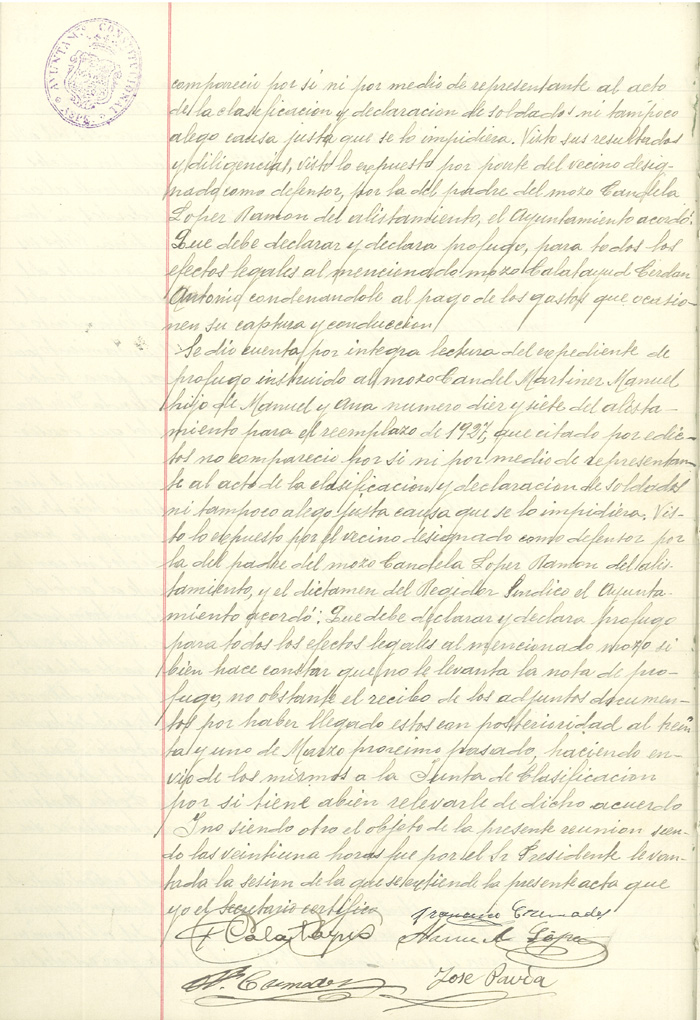 AYUNTAM.º CONSTITUCIONAL
compareció por sí ni por medio de representante al acto
de la clasificacion y declaracion de soldados ni tampoco
alego causa justa que se lo impidiera. Visto sus resultados
y diligencias, visto lo expuesto por parte del vecino desig-
nado como defensor, por la del padre del mozo Candela
Lopez Ramon del alistamiento, el Ayuntamiento acordó:
Que debe declarar y declara profugo, para todos los
efectos legales al mencionado mozo Calatayud Cerdan
Antonio condenandole al pago de los gastos que ocasio-
nen su captura y conduccion
Se dio cuenta por integra lectura del expediente de
profugo instruido al mozo Candel Martinez Manuel
hijo de Manuel y Ana numero diez y siete del alista-
miento para el reemplazo de 1927, que citado por edic-
tos no compareció por si ni por medio de representan-
te al acto de la clasificacion y declaracion de soldados
ni tampoco alego justa causa que se lo impidiera. Vis-
to lo expuesto por el vecino designado como defensor por
la del padre del mozo Candela Lopez Ramon del alis-
tamiento, y el dictamen del Regidor Sindico el Ayunta-
miento acordó: Que debe declarar y declara profugo
para todos los efectos legales al mencionado mozo si
bien hace constar que no le levanta la nota de pro-
fugo, no obstante el recibo de los adjuntos documen-
tos por haber llegado estos con posterioridad al trein
ta y uno de Marzo proximo pasado, haciendo en-
vio de los mismos a la Junta de Clasificacion
por si tiene abien relevarle de dicho acuerdo
Y no siendo otro el objeto de la presente reunion sien-
do las veintiuna horas fue por el Sr Presidente levan-
tada la sesion de la que se extiende la presente acta que
yo el Secretario certifico
Francisco Cremades
Calatayud
Manuel López
Cremades
Jose Pavía